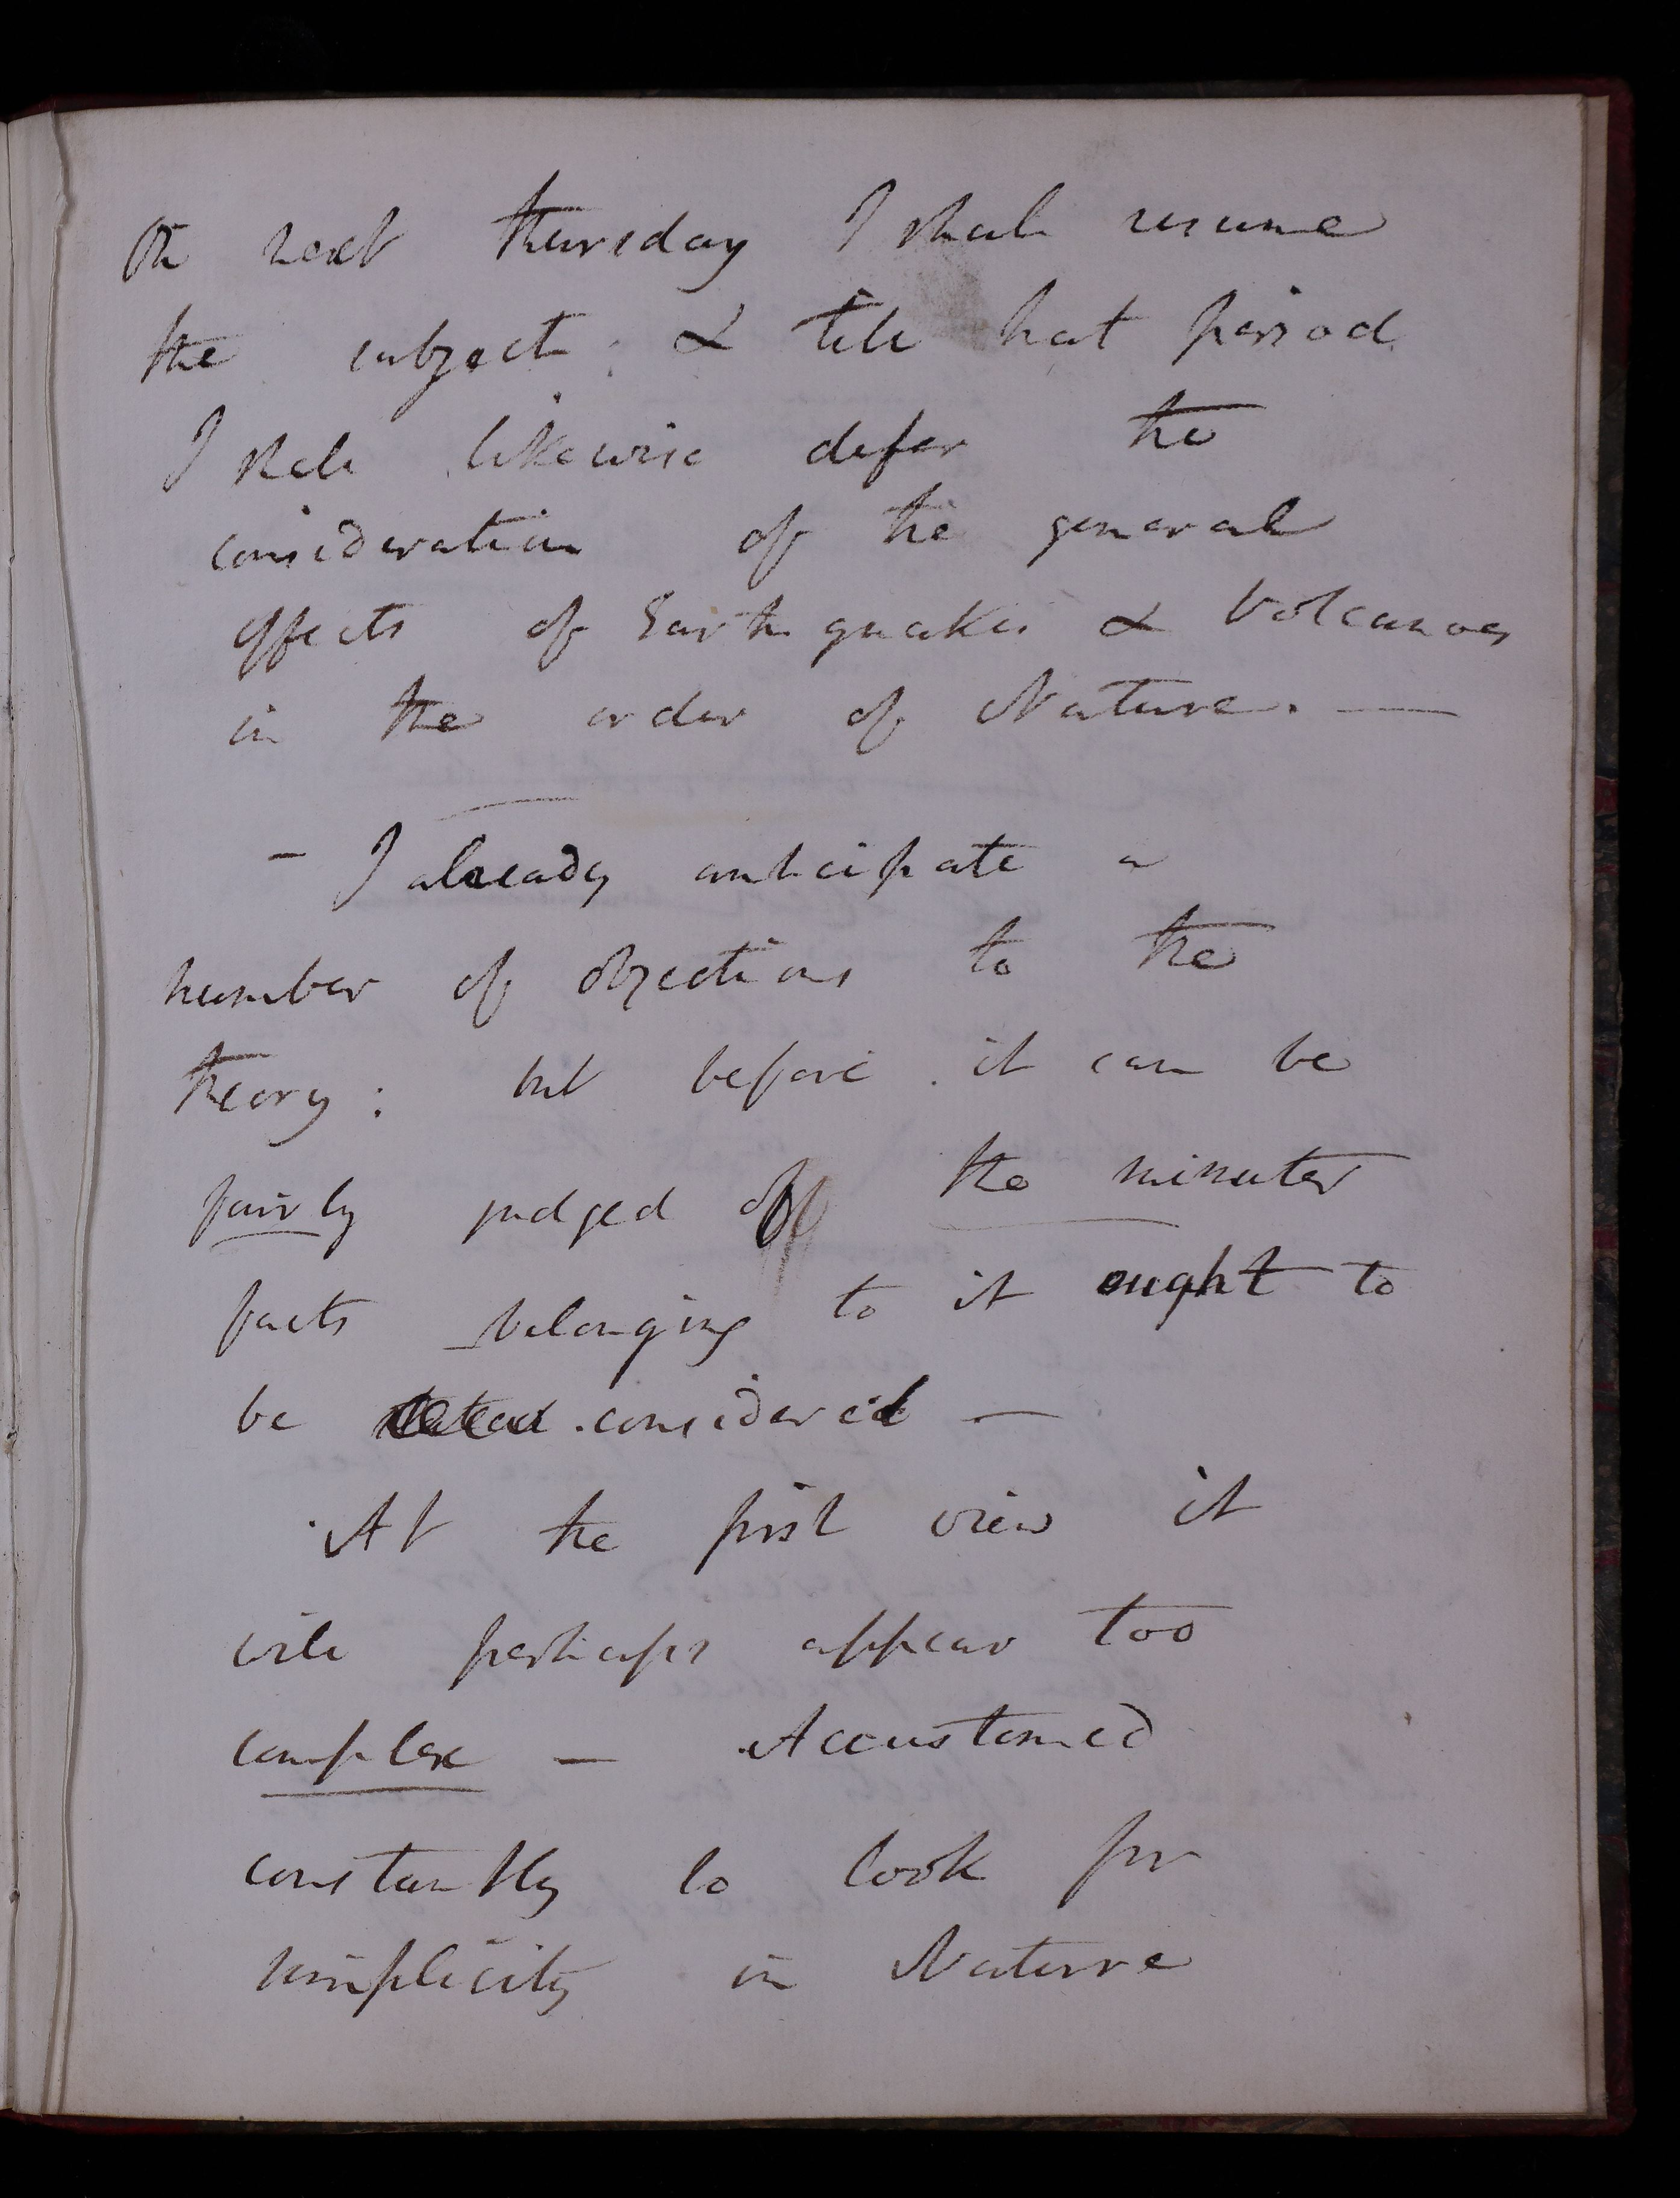 On next thursday I shall resume
the subject; & till that period
I shall likewise defer the
consideration of the general
effects of Earthquakes & Volcanoes
in the order of Nature. —
– I already anticipate a
number of objections to the
theory: but before it can be
fairly judged of the minuter
facts belonging to it ought to
be stated considered —
At the first view it
will perhaps appear too
complex — Accustomed
constantly to look for
simplicity in Nature